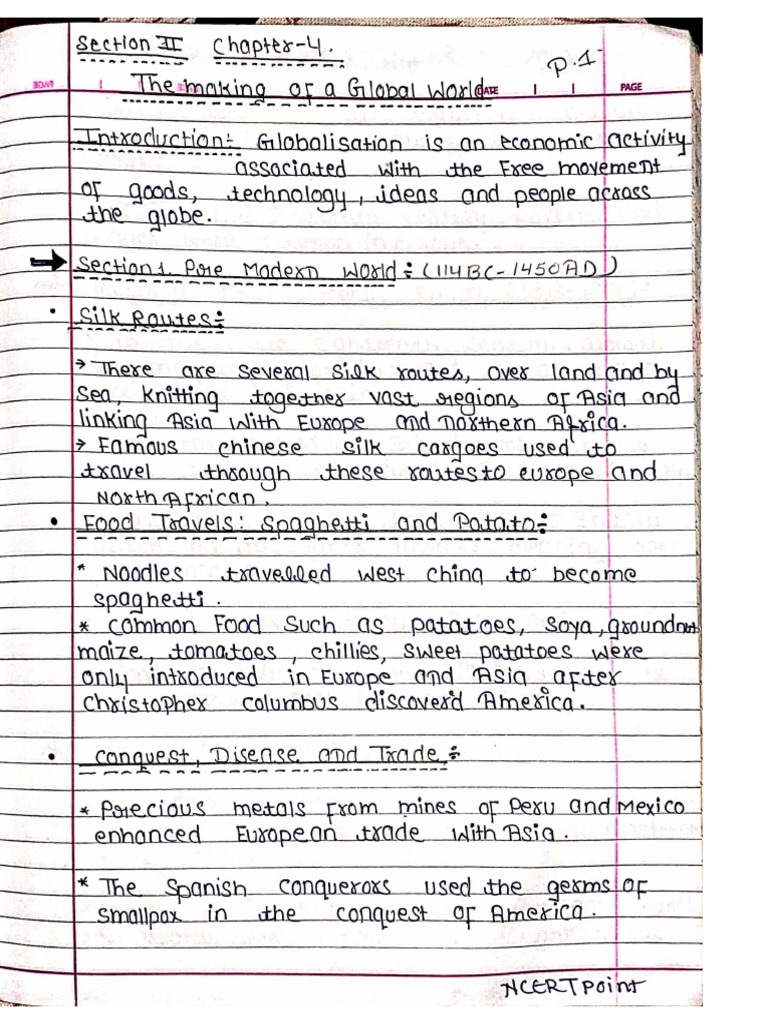 Section II Chapter-4.
P.1
The making of a Global World
DATE
PAGE
Introduction:- Globalisation is an economic activity
associated with the free movement
of goods, technology, ideas and people across
the globe.
Section 1. Pre Modern World:- (114BC-1450AD)
• Silk Routes:-
→ There are several silk routes, over land and by
sea, knitting together vast regions of Asia and
linking Asia with Europe and northern Africa.
→ Famous chinese silk cargoes used to
travel through these routes to europe and
North African.
• Food Travels: Spaghetti and Potato:-
* Noodles travelled west china to become
spaghetti.
* Common Food Such as potatoes, Soya, groundnut
maize, tomatoes, chillies, sweet potatoes were
only introduced in Europe and Asia after
Christopher columbus discover'd America.
• Conquest, Disease and Trade:-
* Precious metals from mines of Peru and Mexico
enhanced European trade with Asia.
* The Spanish conquerors used the germs of
smallpox in the conquest of America.
NCERTpoint